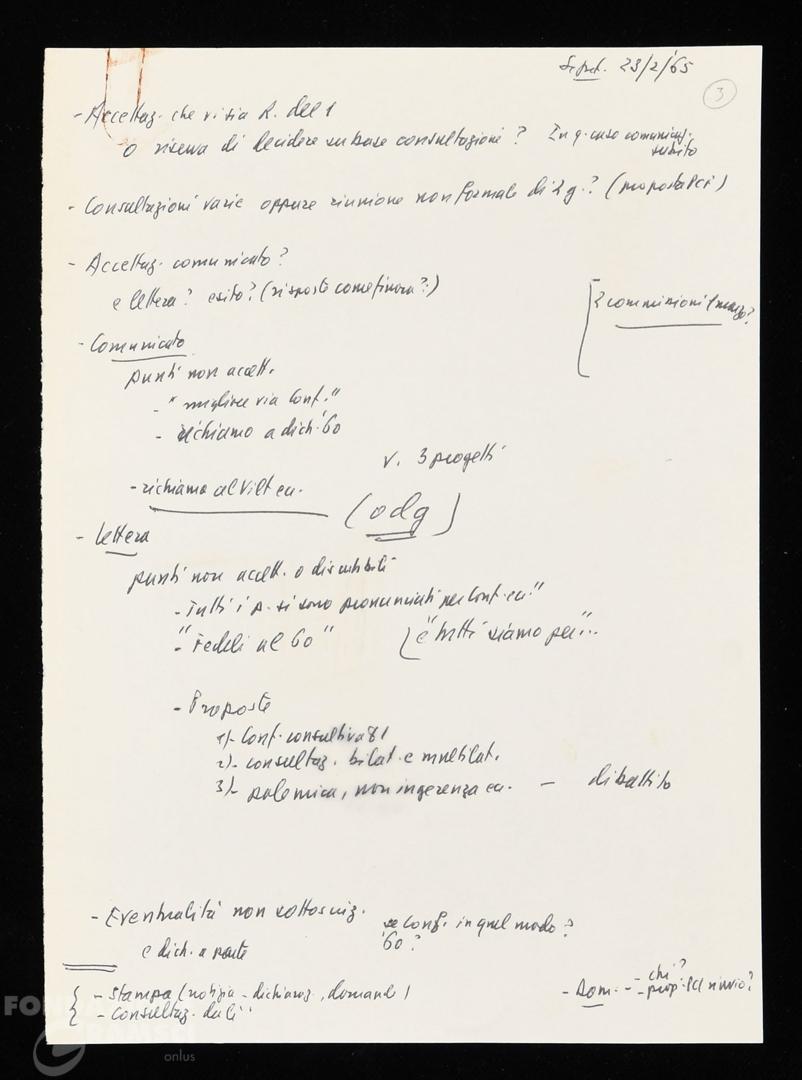 Segret. 23/2/65
3
- Accettaz. che vi sia R. del 1
o riserva di decidere su base consultazione? In q. caso comunicaz. subito
- Consultazioni varie oppure riunione non formale di 2 g.? (proposta PCI)
- Accettaz. comunicato?
e lettera? esito? (risposte come finora?)
2 commissioni 1 marzo?
- Comunicato
punti non accett.
- "migliore via Conf."
- richiamo a dich. '60
v. 3 progetti
- richiamo al VII t ecc.
(odg)
- Lettera
punti non accett. o discutibili
- Tutti i p. si sono pronunciati per Conf. ecc."
- "Fedeli al 60"
"e tutti siamo per"...
- Proposte
1)- Conf. consultiva 81
2)- consultaz. bilat. e multilat.
3)- polemica, non ingerenza ecc. - dibattito
- Eventualità non sottoscriz.
e dich. a parte
se conf. in quel modo?
'60?
- Stampa (notizia - dichiaraz., domande)
- Consultaz. dali
- Dom. - - chi?
- prop. PCI rinvio?
FOND
onlus